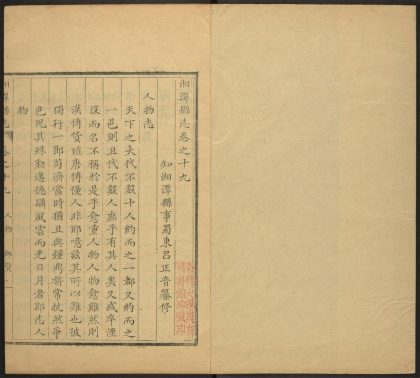 湘潭縣志卷之十九
知湘潭縣事蜀東呂正音纂修
人物志
天下之大代不數十人約而之一都又約而之
一邑則且代不數人烏乎有其人矣又或卒湮
沒而名不稱於是乎愈重人物人物愈難然則
漢傳貨殖唐傳優人非耶噫兹其所以難也彼
獨行一節苟濟當時猶且與鐘鼎旂常抗然爭
色況其殊勲邁德躡風雲而光日月者耶志人
物
湘潭縣志 卷之十九 人物 鄉賢 一